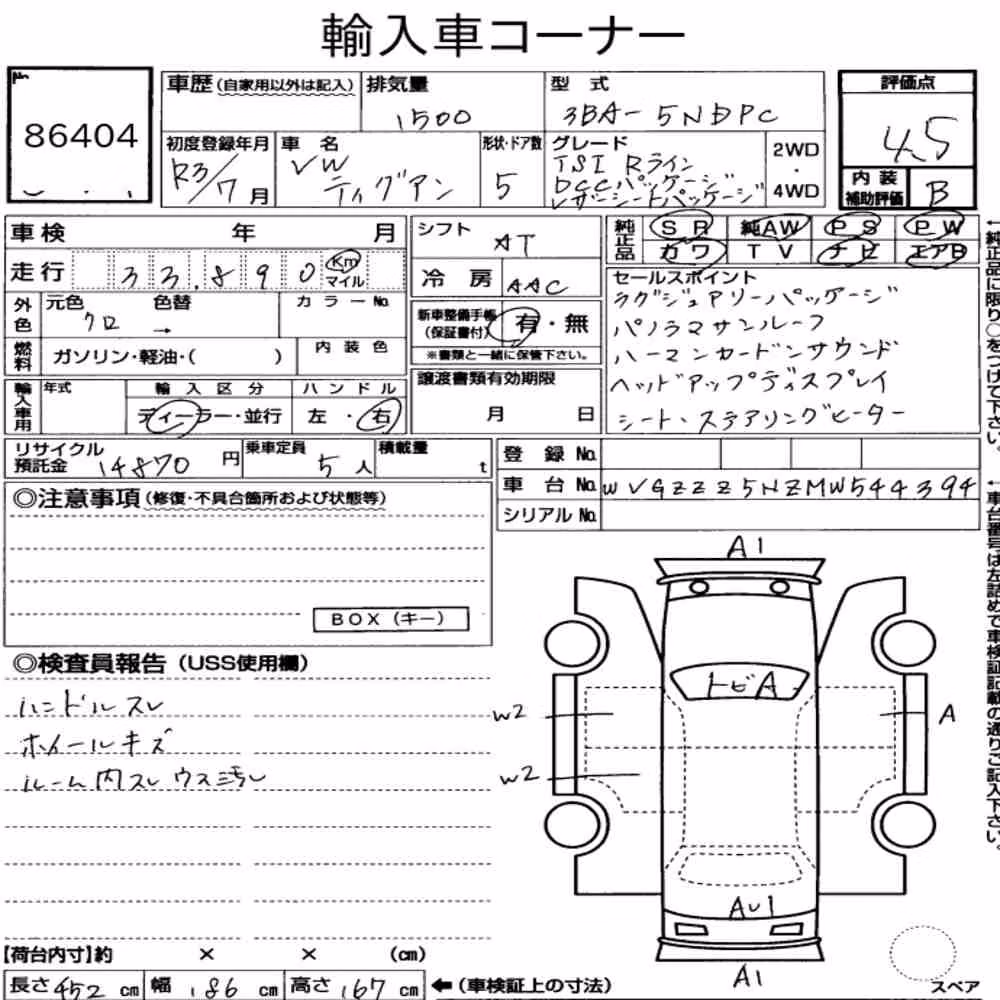 輸入車コーナー
No.
86404
車歴(自家用以外は記入)
排気量
1500
型 式
3BA-5NDPC
評価点
4.5
初度登録年月
R3/7月
車 名
VW
ティグアン
形状・ドア数
5
グレード
TSI Rライン
DCCパッケージ
レザーシートパッケージ
2WD
・
4WD
内 装
補助評価
B
車検 年 月
シフト
AT
純正品
SR 純AW PS PW
カワ TV ナビ エアB
走行 33,890 Km
マイル
冷 房
AAC
セールスポイント
ラグジュアリーパッケージ
パノラマサンルーフ
ハーマンカードンサウンド
ヘッドアップディスプレイ
シート、ステアリングヒーター
外色
元色
クロ
色替
→
カラーNo.
新車整備手帳
(保証書付)
有・無
※書類と一緒に保管下さい。
燃料
ガソリン・軽油・( )
内 装 色
輸入車用
年式
輸 入 区 分
ディーラー・並行
ハ ン ド ル
左 ・ 右
譲渡書類有効期限
月 日
リサイクル
預託金
14870 円
乗車定員
5 人
積載量
t
登 録 No.
車 台 No. WVGZZZ5NZMW544394
シリアル No.
←純正品に限り○をつけて下さい。
←車台番号は左詰めで車検証記載の通りご記入下さい。
◎注意事項(修復・不具合箇所および状態等)
BOX(キー)
◎検査員報告(USS使用欄)
ハンドルスレ
ホイールキズ
ルーム内スレ ウス汚レ
A1
トビA
W2
A
W2
AU1
A1
スペア
【荷台内寸】約 × × (cm)
長さ 452 cm 幅 186 cm 高さ 167 cm ←(車検証上の寸法)